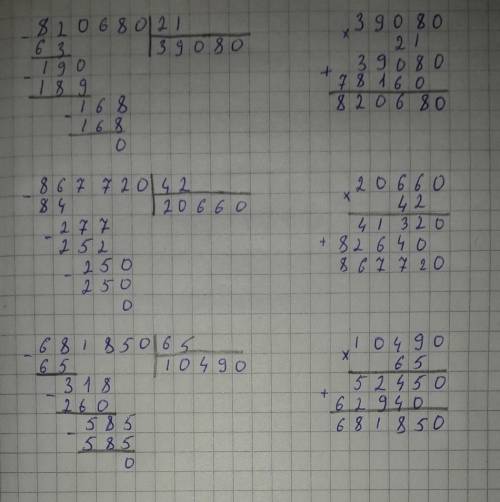 - 820680 | 21
63 | 39080
- 190
189
- 168
168
0
× 39080
21
+ 39080
78160
820680
- 867720 | 42
84 | 20660
- 277
252
- 250
250
0
× 20660
42
+ 41320
82640
867720
- 681850 | 65
65 | 10490
- 318
260
- 585
585
0
× 10490
65
+ 52450
62940
681850